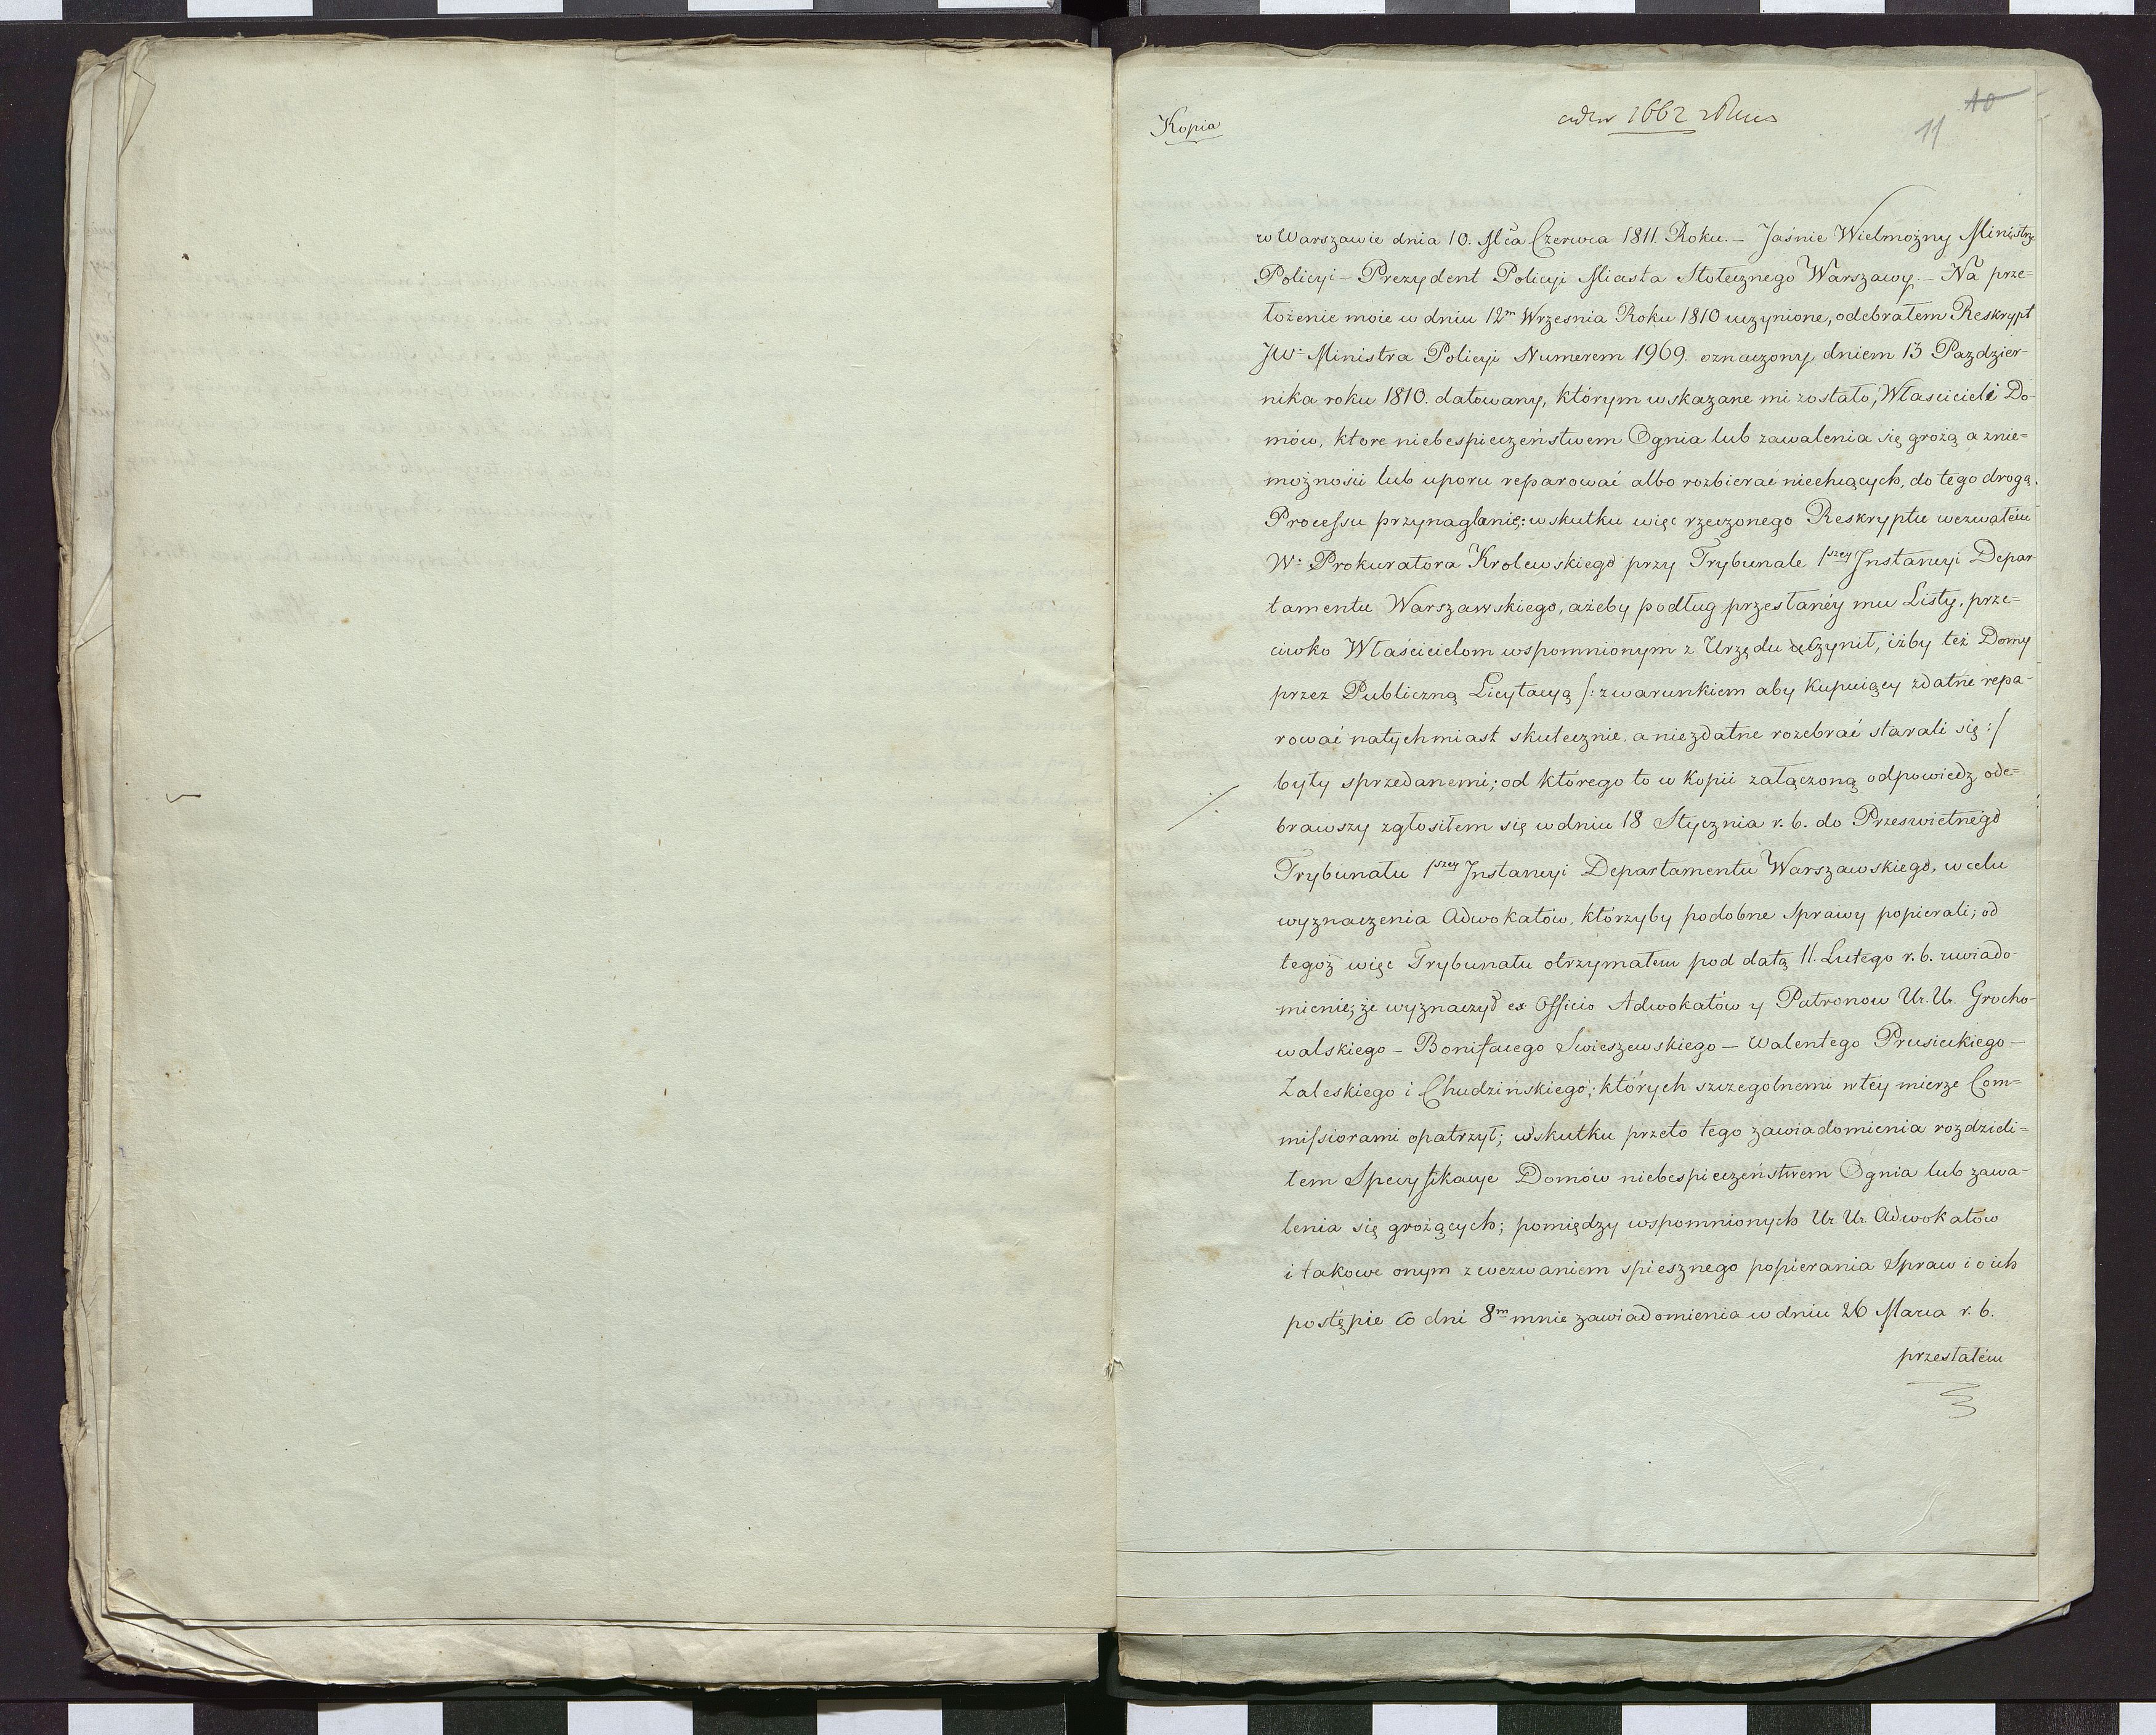 Kopia
1662
10
11
w Warszawie dnia 10. Mca Czerwca 1811. Roku. — Jaśnie Wielmożny Ministrze
Policyi — Prezydent Policyi Miasta Stołecznego Warszawy. — Na prze=
łożenie moie w dniu 12m Wrzesnia Roku 1810 uczynione, odebrałem Reskrypt
JW: Ministra Policyi Numerem 1969. oznaczony, dniem 13 Pazdzier-
nika roku 1810. datowany, którym wskazane mi zostało, Własciciele Do-
mów, ktore niebespieczeństwem Ognia lub zawalenia się grożą a znie=
możności lub uporu reparować albo rozbierać niechcących, do tego drogą
Processu przynaglenie: wskutku więc rzeczonego Reskryptu wezwałem
W: Prokuratora Krolewskiego przy Trybunale 1szey Instancyi Depar-
tamentu Warszawskiego, ażeby podług przesłanéy mu Listy, prze=
ciwko Właścicielom wspomnionym z Urzędu czynił, iżby też Domy
przez Publiczną Licytacyą /: zwarunkiem aby kupuiący zdatne repa-
rować natychmiast skutecznie, a niezdatne rozebrać starali się :/
były sprzedanemi; od którego to w kopii załączoną odpowiedz ode=
brawszy zgłosiłem się w dniu 18 Stycznia r. b. do Przeswietnego
Trybunału 1szey Instancyi Departamentu Warszawskiego, w celu
wyznaczenia Adwokatów, którzyby podobne Sprawy popierali; od
tegoż więc Trybunału otrzymałem pod datą 11. Lutego r. b. uwiado-
mienie, że wyznaczył ex Officio Adwokatów y Patronow Ur. Ur. Grocho-
walskiego — Bonifacego Swieszewskiego — Walentego Prusieckiego —
Zaleskiego i Chudzińskiego; których szczegolnemi w tey mierze Com=
missiorami opatrzył; wskutku przeto tego zawiadomienia rozdzieli=
łem Specyfikacye Domów niebespieczeństwem Ognia lub zawa-
lenia się grożących; pomiędzy wspomnionych Ur Ur. Adwokatow
i takowe onym z wezwaniem spiesznego popierania Spraw i o ich
postępie co dni 8m mnie zawiadomienia w dniu 26 Marca r. b.
przesłałem